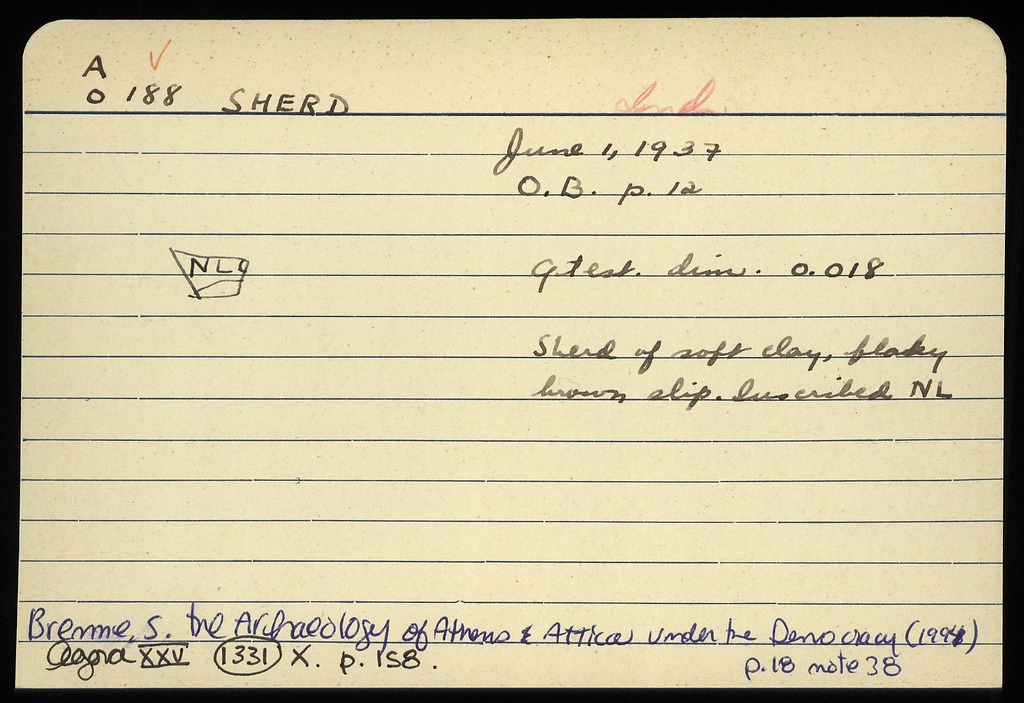 A
O 188 SHERD
June 1, 1937
O.B. p. 12
NLO
Gtest. dim. 0.018
Sherd of soft clay, flaky
brown slip. Inscribed NL
Brenne, S. the Archaeology of Athens & Attica under the Democracy (1994)
Agora XXV 1331 X. p. 158.
p. 18 note 38